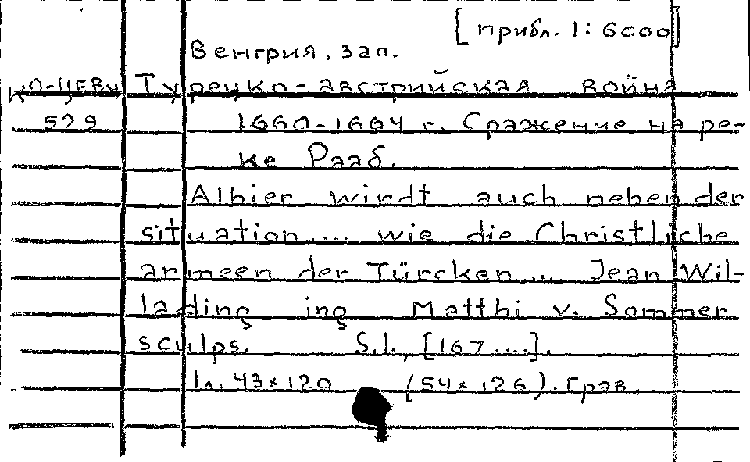 [прибл. 1:6000]
Венгрия, зап.
Ко-Цеви Турецко-австрийская война
529 1660-1664 г. Сражение на ре-
ке Рааб.
Alhier wirdt auch neben der
situation... wie die Christliche
armeen der Türcken... Jean Wil-
lading ing Matthi v. Sommer
sculps. S.l., [167...].
1 л. 43x120 (54x126). Грав.